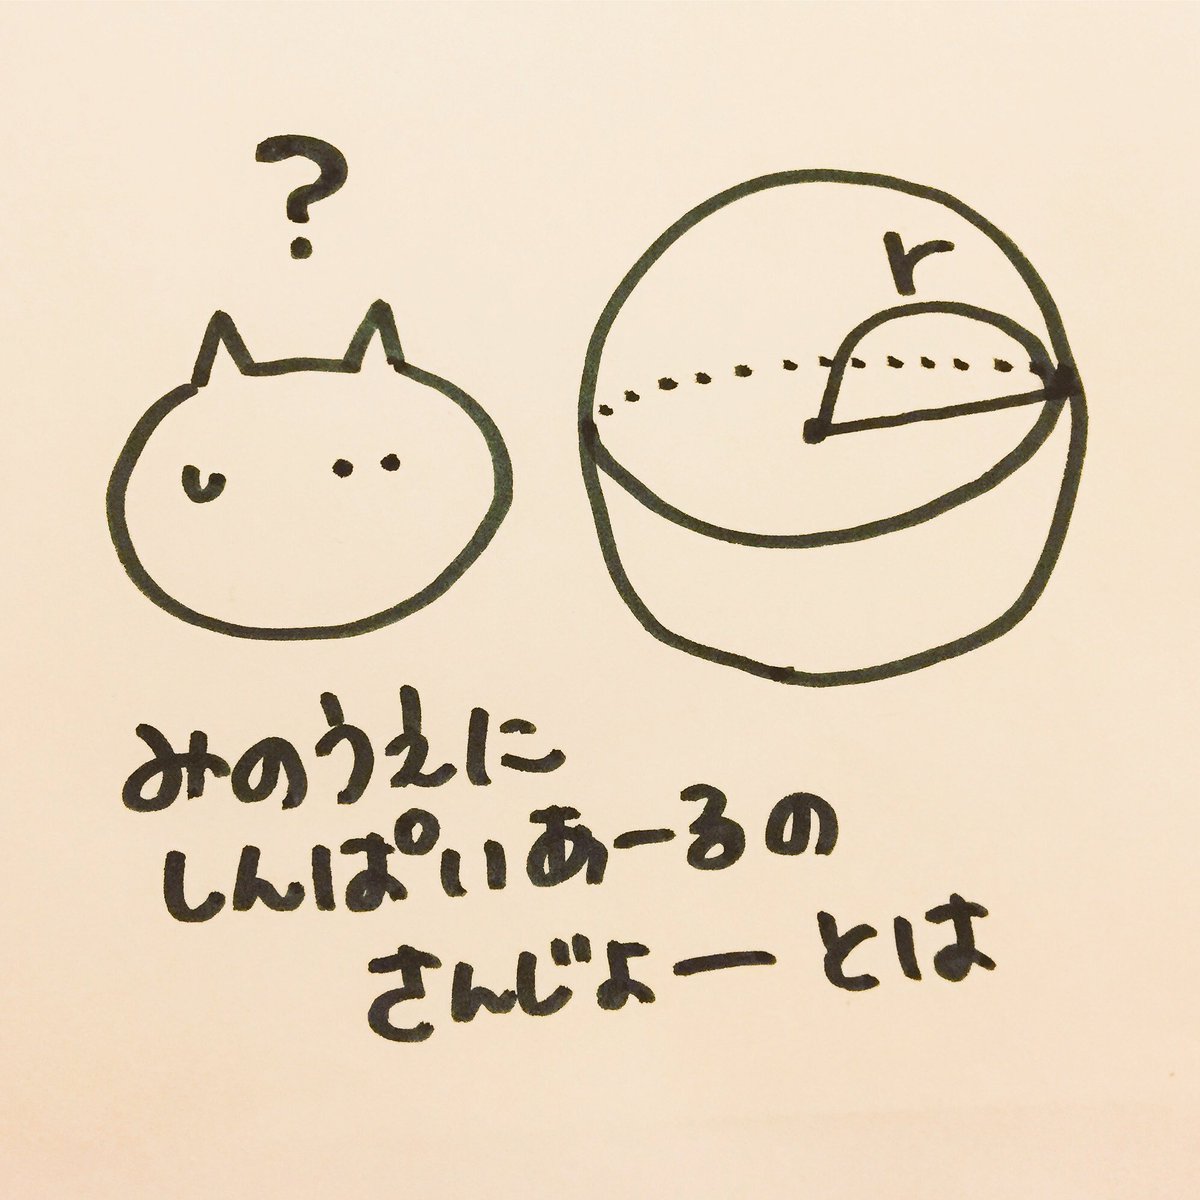 ?
r
みのうえに
しんぱいあーるの
さんじょーとは